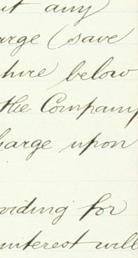 ut any
arge (save
hire below
the Company
harge upon
viding for
interest will